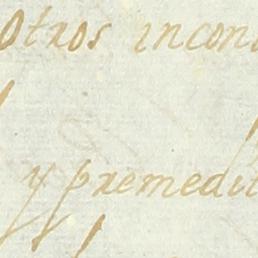 Otros incon
y premedit